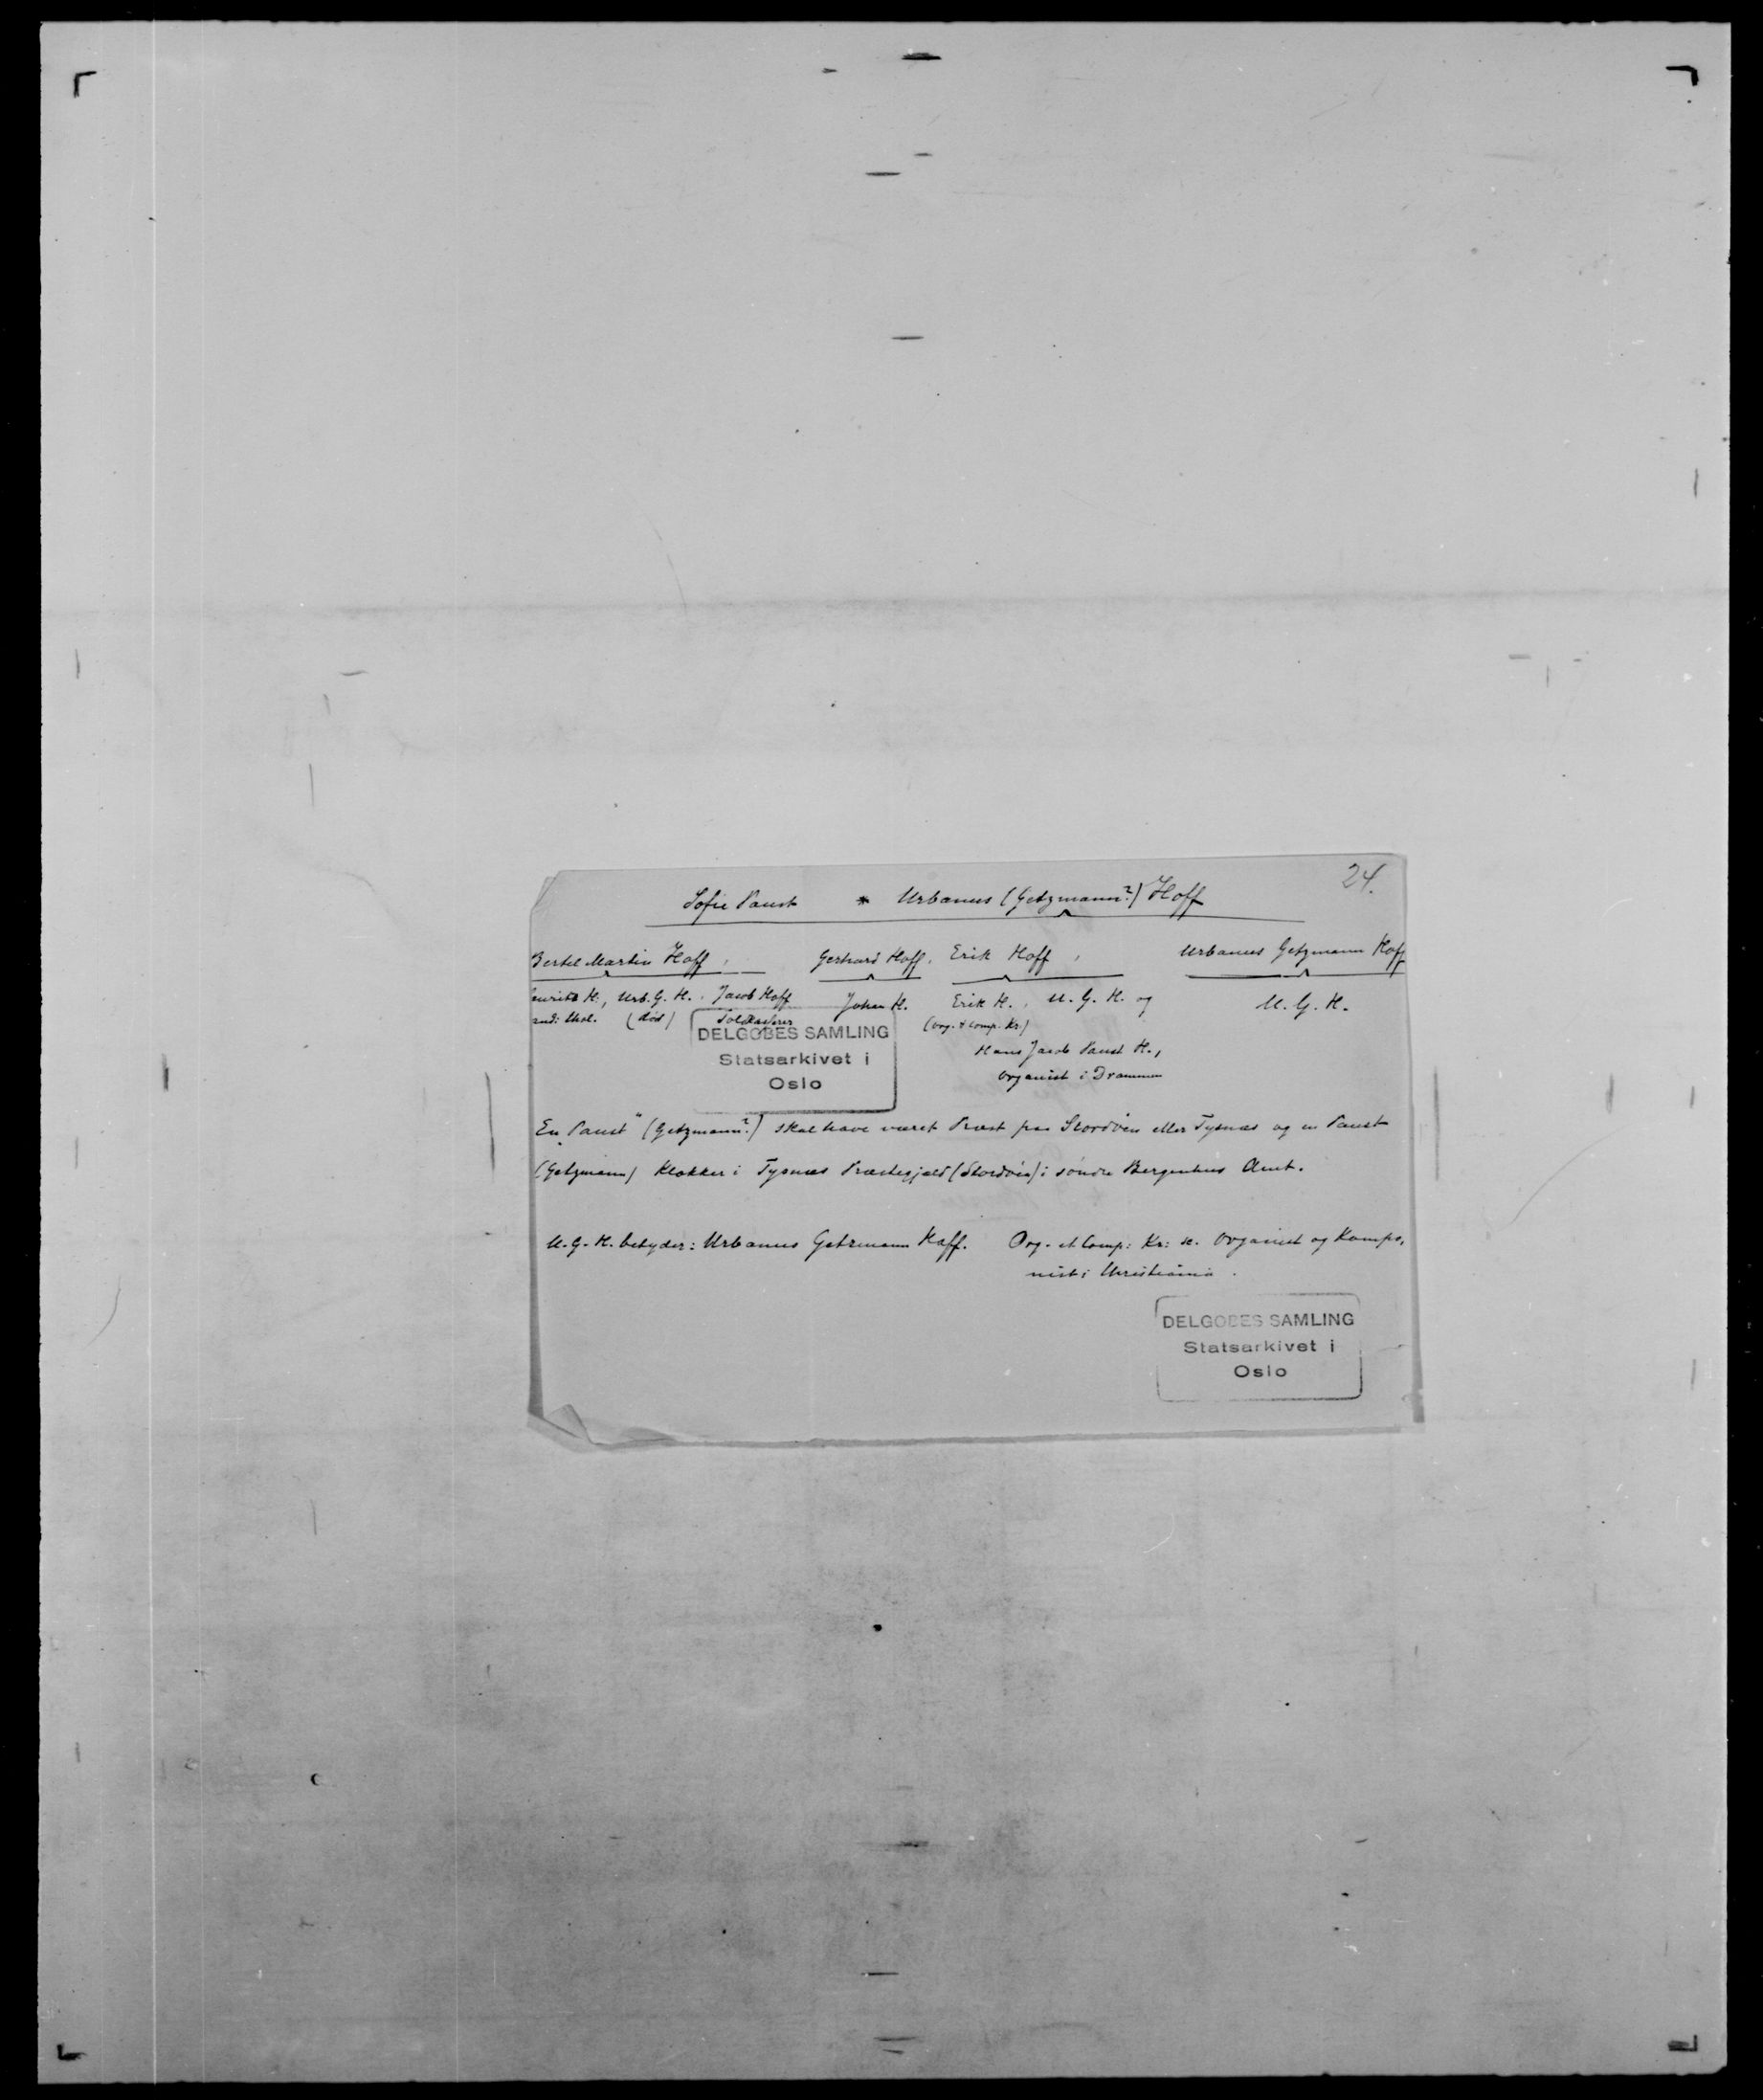 24.
Sofie Paust * Urbanus (Getzmann?) Hoff
Bertel Martin Hoff, Gerhard Hoff, Erik Hoff, Urbanus Getzmann Hoff
H., Urb. G. H., Jacob Hoff Johan H. Erik H., U. G. H. og U. G. H.
(død) Toldkasserer (Org. & Comp. Kr.)
Hans Jacob Paust H.,
Organist i Drammen
DELGOBES SAMLING
Statsarkivet i
Oslo
En „Paust" (Getzmann?) skal have været Præst paa Stordöen eller Tysnæs og en Paust
(Getzmann) Klokker i Tysnæs Præstegjæld (Stordöen) i söndre Bergenhus Amt.
U. G. H. betyder: Urbanus Getzmann Hoff. Org. et Comp: Kr: Organist og Kompo-
nist i Christiania.
DELGOBES SAMLING
Statsarkivet i
Oslo